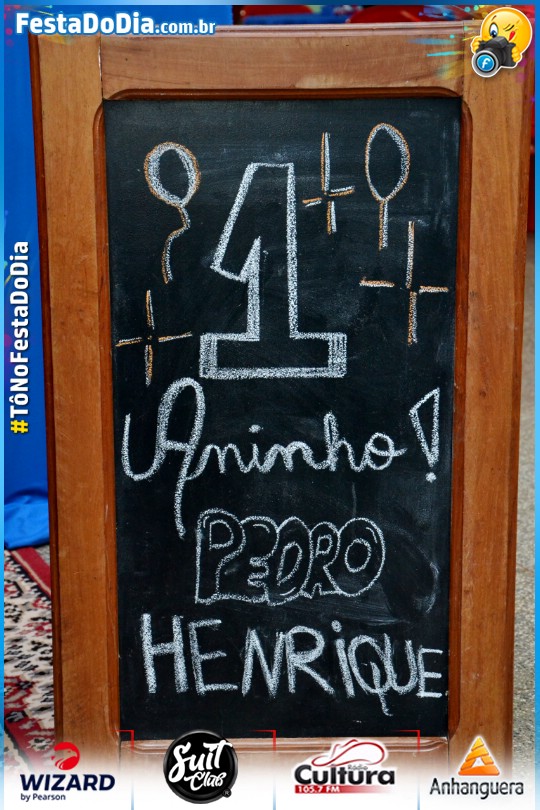 FestaDoDia.com.br
#TôNoFestaDoDia
1
Aninho!
PEDRO
HENRIQUE
WIZARD
by Pearson
Suit
Club
Rádio
Cultura
105.7 FM
Anhanguera